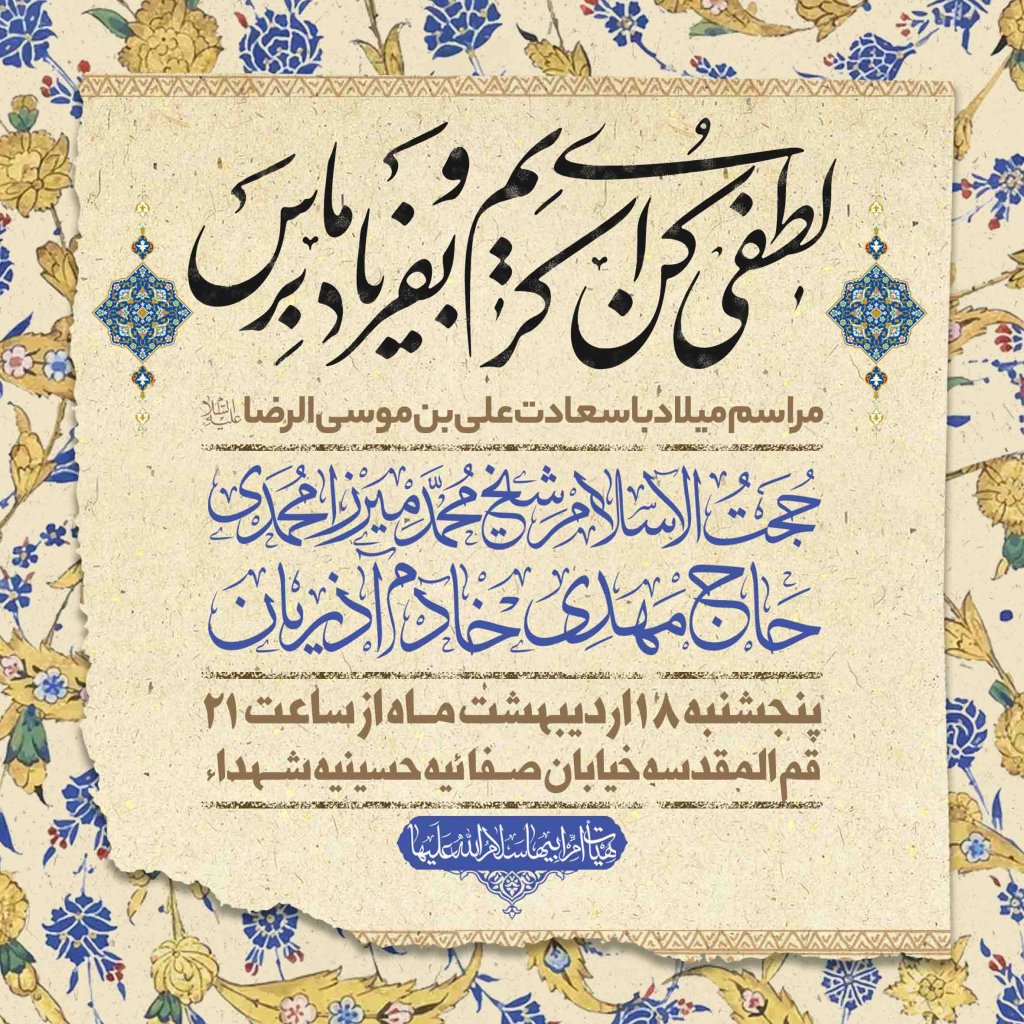 لطفی کن ای کریم و بفریاد ما برس
مراسم میلاد با سعادت علی بن موسی الرضا علیه السلام
حُجَتُ الاسلام شیخ مُحمَّد میرزامُحمَدی
حاج مهدی خادم آذریان
پنجشنبه ۱۸ اردیبهشت ماه از ساعت ۲۱
قم المقدسه خیابان صفائیه حسینیه شهداء
هیأت اُم ابیها سلام الله علیها